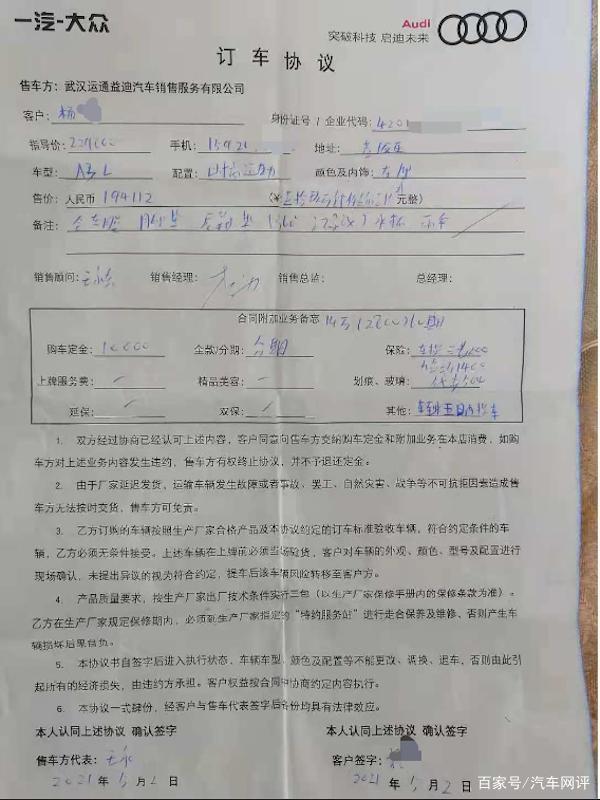 一汽-大众
Audi
突破科技 启迪未来
订车协议
售车方：武汉运通益迪汽车销售服务有限公司
客户：杨 身份证号 / 企业代码：4201
指导价： 手机： 地址：
车型：A3L 配置：时尚运动 颜色及内饰：
售价：人民币 194112 （￥ 元整）
备注：
销售顾问： 销售经理： 销售总监： 总经理：
合同附加业务备忘
购车定金：10000 全款/分期：分期 保险：
上牌服务费： 精品美容： 划痕、玻璃：
延保： 双保： 其他：
1. 双方经过协商已经认可上述内容，客户同意向售车方交纳购车定金和附加业务在本店消费，如购
车方对上述业务内容发生违约，售车方有权终止协议，并不予退还定金。
2. 由于厂家延迟发货，运输车辆发生故障或者事故、罢工、自然灾害、战争等不可抗拒因素造成售
车方无法按时交货，售车方可免责。
3. 乙方订购的车辆按照生产厂家合格产品及本协议约定的订车标准验收车辆，符合约定条件的车
辆，乙方必须无条件接受。上述车辆在上牌前必须当场验货，客户对车辆的外观、颜色、型号及配置进行
现场确认，未提出异议的视为符合约定，提车后该车辆风险转移至客户方。
4. 产品质量要求，按生产厂家出厂技术条件实行三包（以生产厂家保修手册内的保修条款为准）。
乙方在生产厂家规定保修期内，必须到生产厂家指定的“特约服务站”进行走合保养及维修，否则产生车
辆损坏后果自负。
5. 本协议书自签字后进入执行状态，车辆车型、颜色及配置等不能更改、调换、退车，否则由此引
起所有的经济损失，由违约方承担。客户权益按合同中协商约定内容执行。
6. 本协议一式肆份，经客户与售车代表签字后各份均具有法律效应。
本人认同上述协议 确认签字 本人认同上述协议 确认签字
售车方代表： 客户签字：
2021 年 5 月 2 日 2021 年 5 月 2 日
百家号/汽车网评